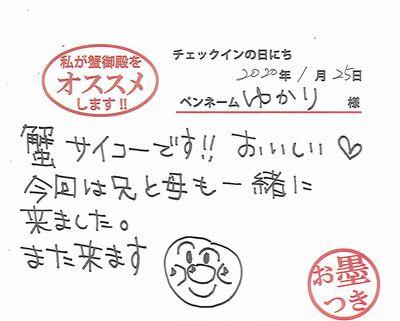 私が蟹御殿を
オススメ
します!!
チェックインの日にち
2020年1月25日
ペンネーム ゆかり 様
蟹 サイコーです!! おいしい♡
今回は兄と母も一緒に
来ました。
また来ます
お墨
つき